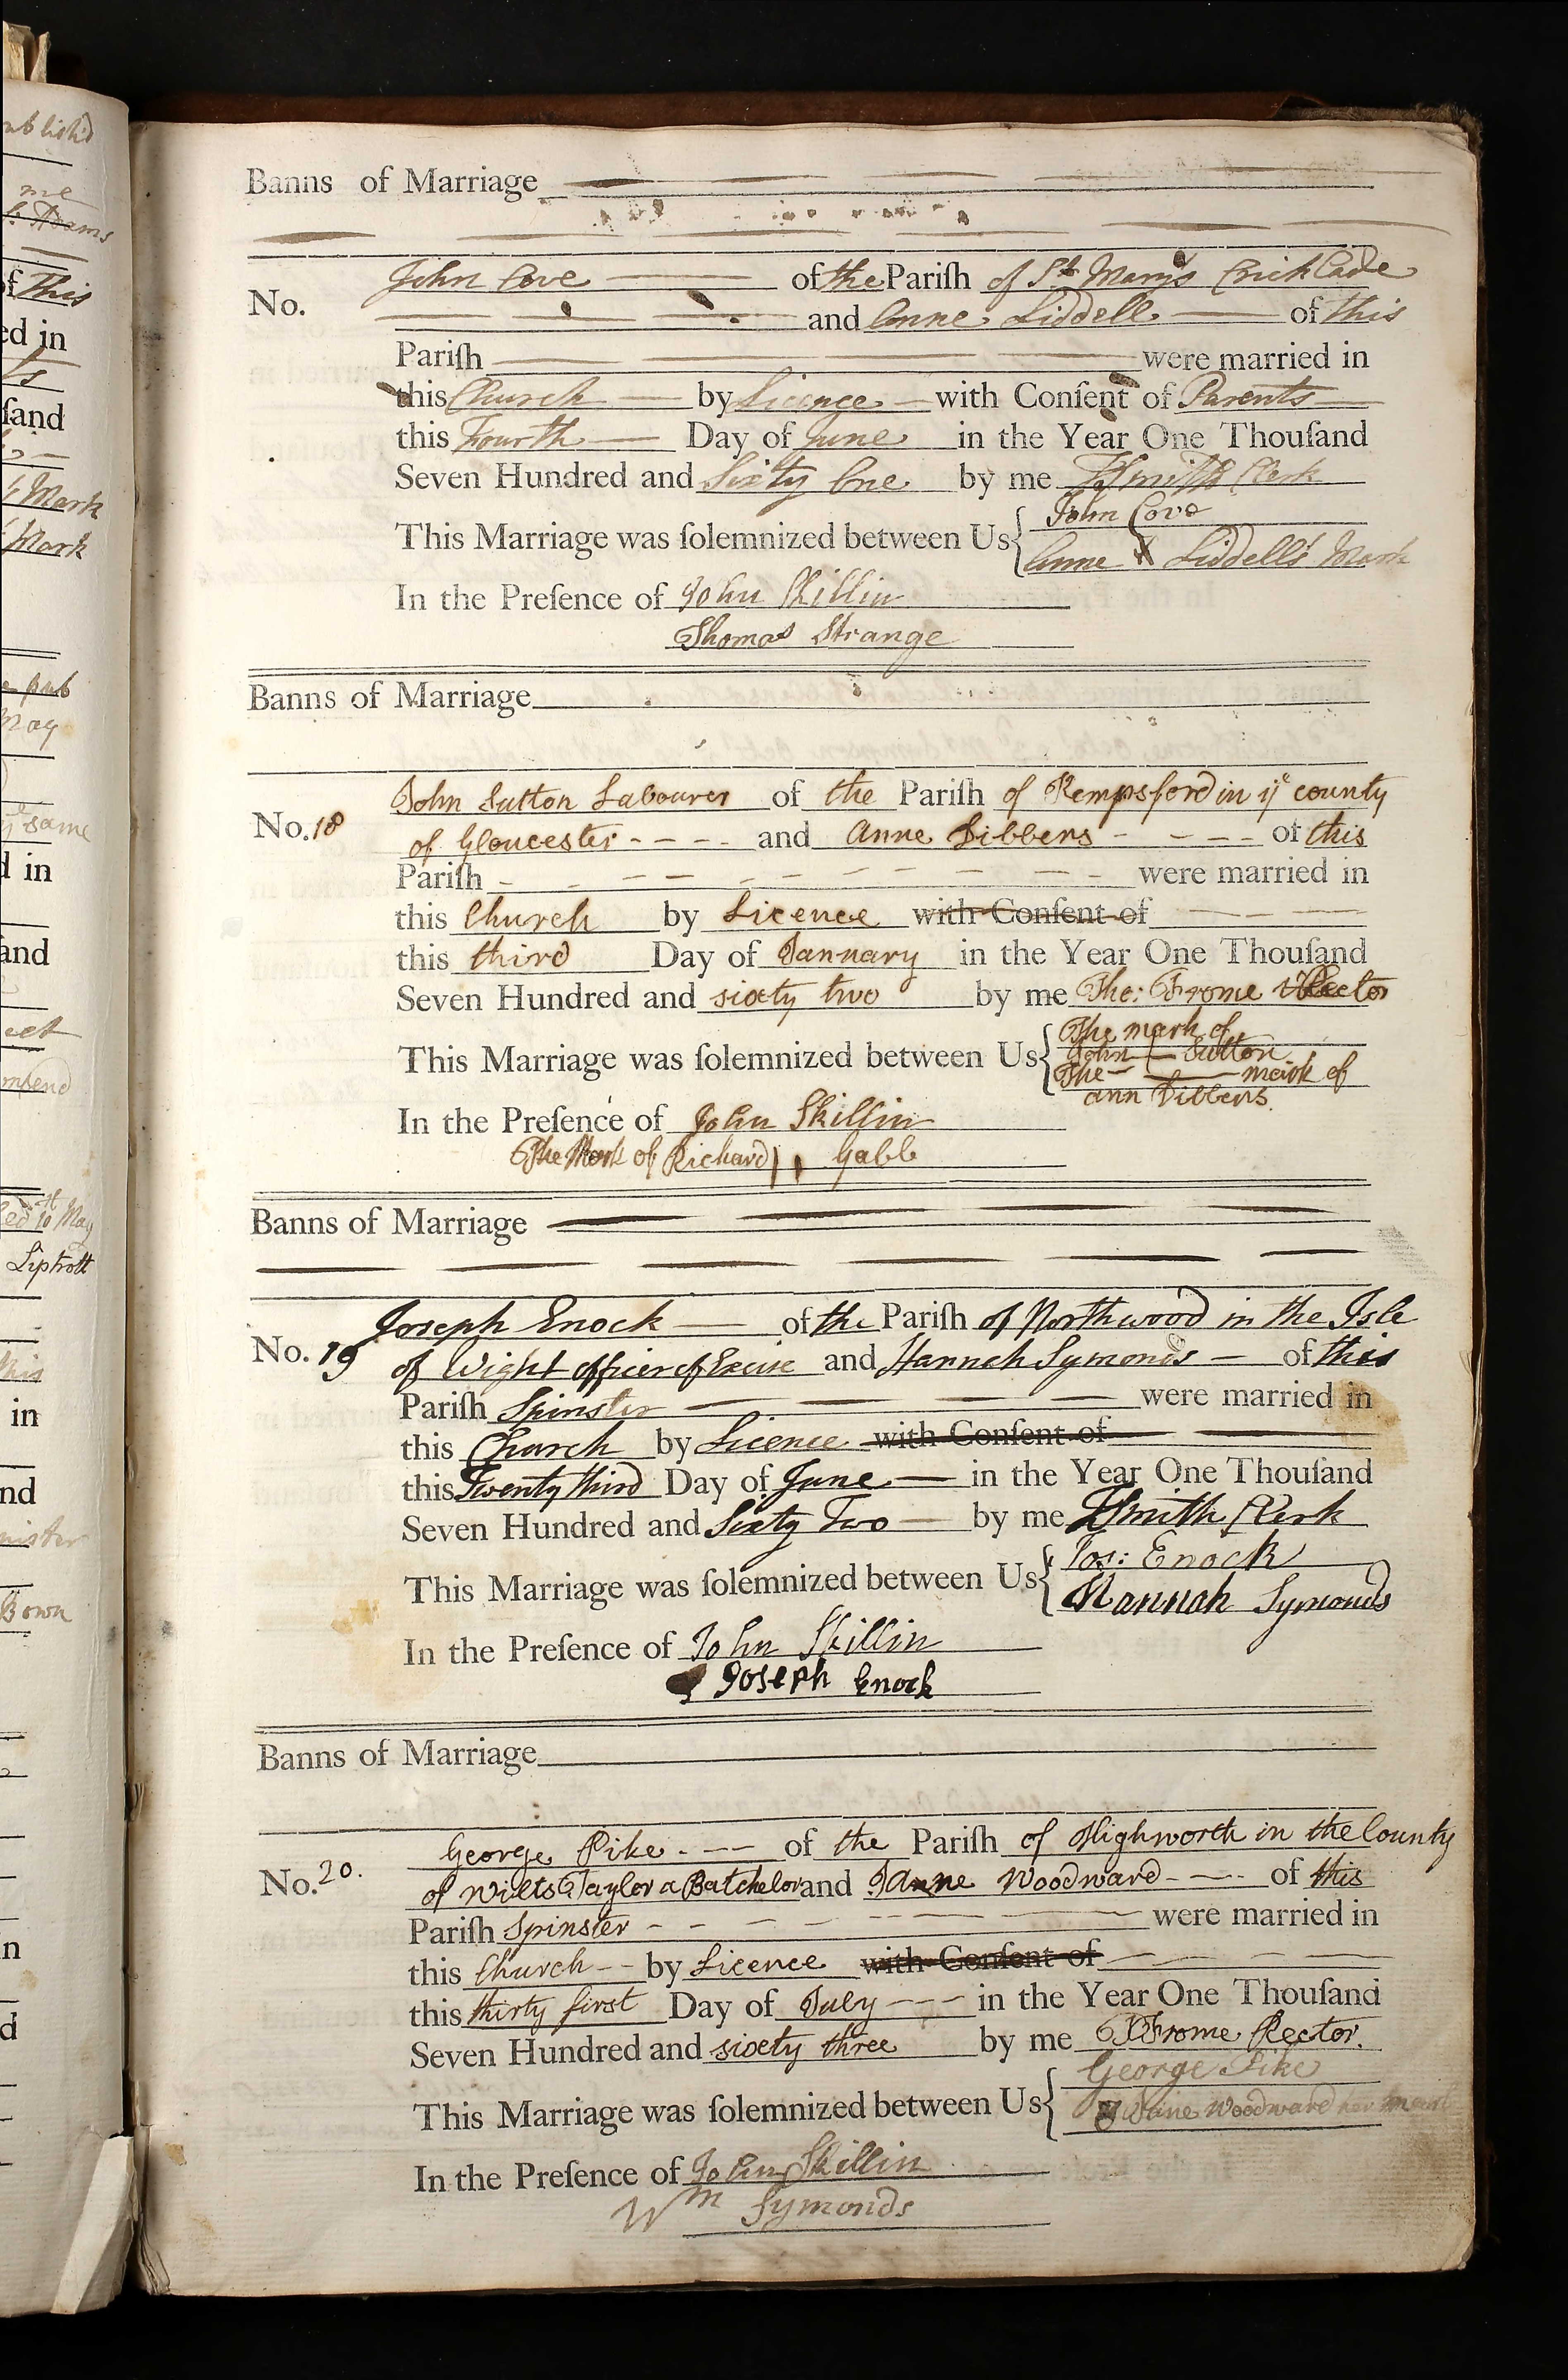 Banns of Marriage
No. John Cove of the Pariſh of St. Marys Crick Lade
and Anne Liddell of this
Pariſh were married in
this Church by Licence with Conſent of Parents
this Fourth Day of June in the Year One Thouſand
Seven Hundred and Sixty One by me Smith Clerk
This Marriage was ſolemnized between Us John Cove
Anne X Liddell's Mark
In the Preſence of John Skillin
Thomas Strange
Banns of Marriage
No. 18 John Sutton Labourer of the Pariſh of Kempsford in ye county
of Gloucester and Anne Dibbens of this
Pariſh were married in
this Church by Licence with Conſent of
this third Day of January in the Year One Thouſand
Seven Hundred and sixty two by me Tho: Frome Rector
This Marriage was ſolemnized between Us The mark of
John Sutton
The mark of
ann Dibbens
In the Preſence of John Skillin
The Mark of Richard Gabb
Banns of Marriage
No. 19 Joseph Enock of the Pariſh of Northwood in the Isle
of Wight officer of Excise and Hannah Symonds of this
Pariſh Spinster were married in
this Church by Licence with Conſent of
this Twenty third Day of June in the Year One Thouſand
Seven Hundred and Sixty Two by me Smith Clerk
This Marriage was ſolemnized between Us Jos: Enock
Hannah Symonds
In the Preſence of John Skillin
Joseph Enock
Banns of Marriage
No. 20. George Pike of the Pariſh of Highworth in the County
of Wilts Taylor a Batchelor and Jane Woodward of this
Pariſh Spinster were married in
this Church by Licence with Conſent of
this thirty first Day of July in the Year One Thouſand
Seven Hundred and sixty three by me T Frome Rector.
This Marriage was ſolemnized between Us George Pike
Jane Woodward her mark
In the Preſence of John Skillin
Wm Symonds